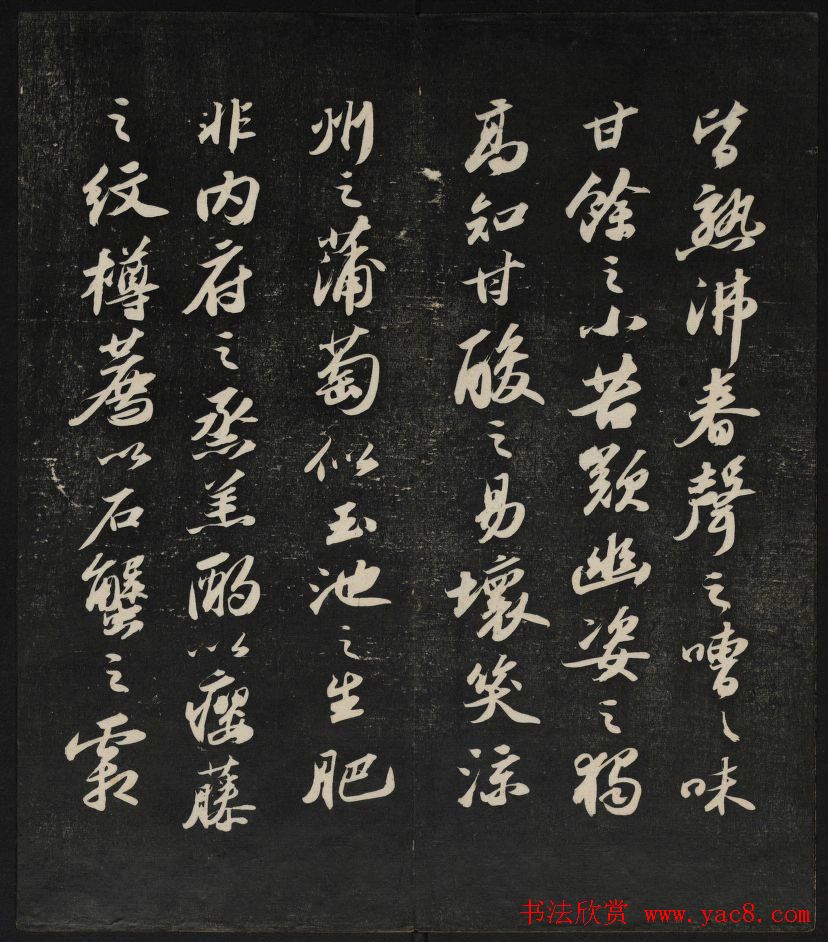 皆熟沸舂聲之嘈々味
甘餘之小苦歎幽姿之獨
高知甘酸之易壞笑涼
州之蒲萄似玉池之生肥
非内府之烝羔酌以癭藤
之紋樽薦以石蟹之霜
书法欣赏 www.yac8.com